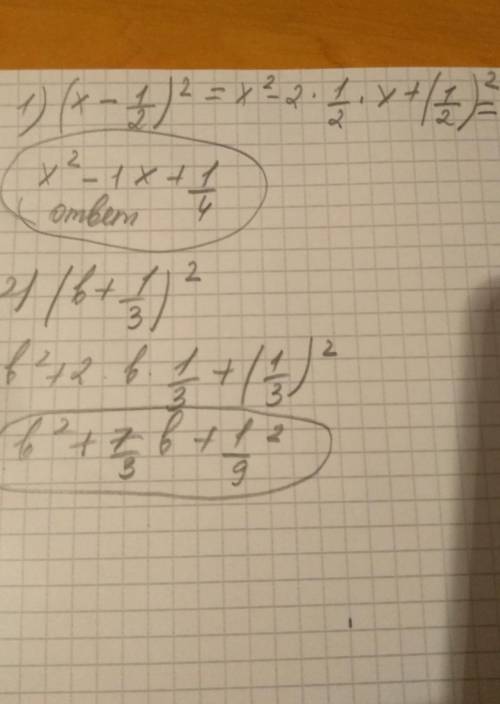 1) (x - 1/2)² = x² - 2 · 1/2 · x + (1/2)² =
x² - 1x + 1/4
ответ
2) (b + 1/3)²
b² + 2 · b · 1/3 + (1/3)²
b² + 7/3 b + 1/9 ²